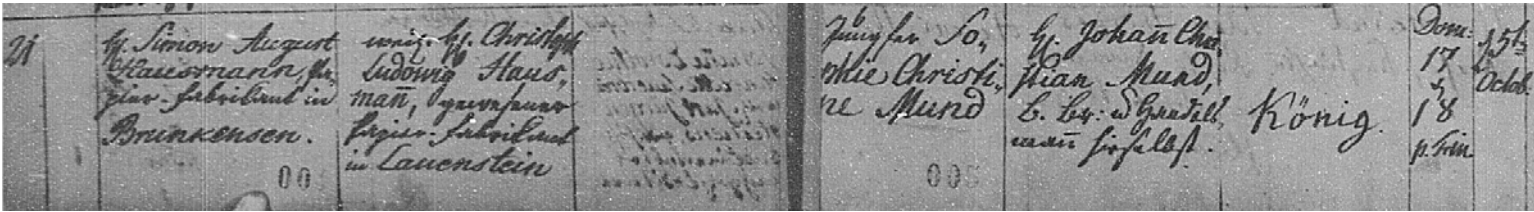 21
H. Simon August
Hausmann, Pa-
pier-Fabrikant in
Brünkensen.
weil. H. Christoph
Ludwig Haus-
mañ, gewesener
Papier-Fabrikant
in Lauenstein
Jungfer So-
phie Christi-
ne Mund
H. Johañ Chri-
stian Mund,
B. Br: u Handels-
mañ hieselbst.
König.
Dom:
17
&
18
p. Trin.
d. 5t
Octob.
00
000